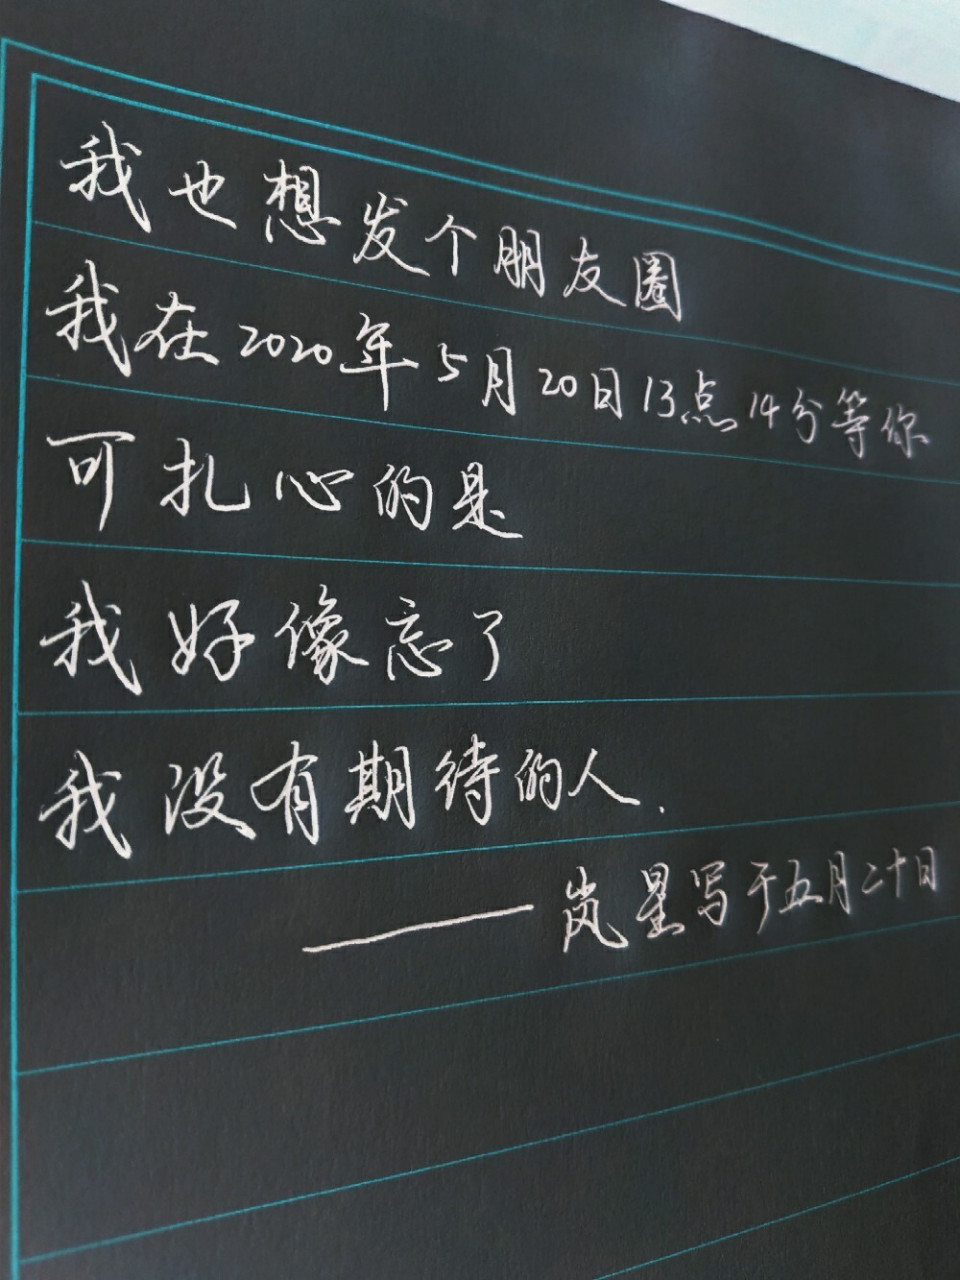 我也想发个朋友圈
我在2020年5月20日13点14分等你
可扎心的是
我好像忘了
我没有期待的人.
——岚星写于五月二十日